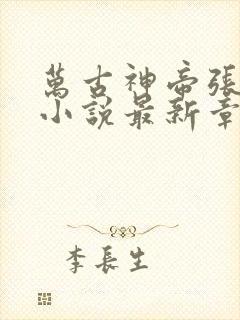 萬古神帝張
小說最新章
李長生